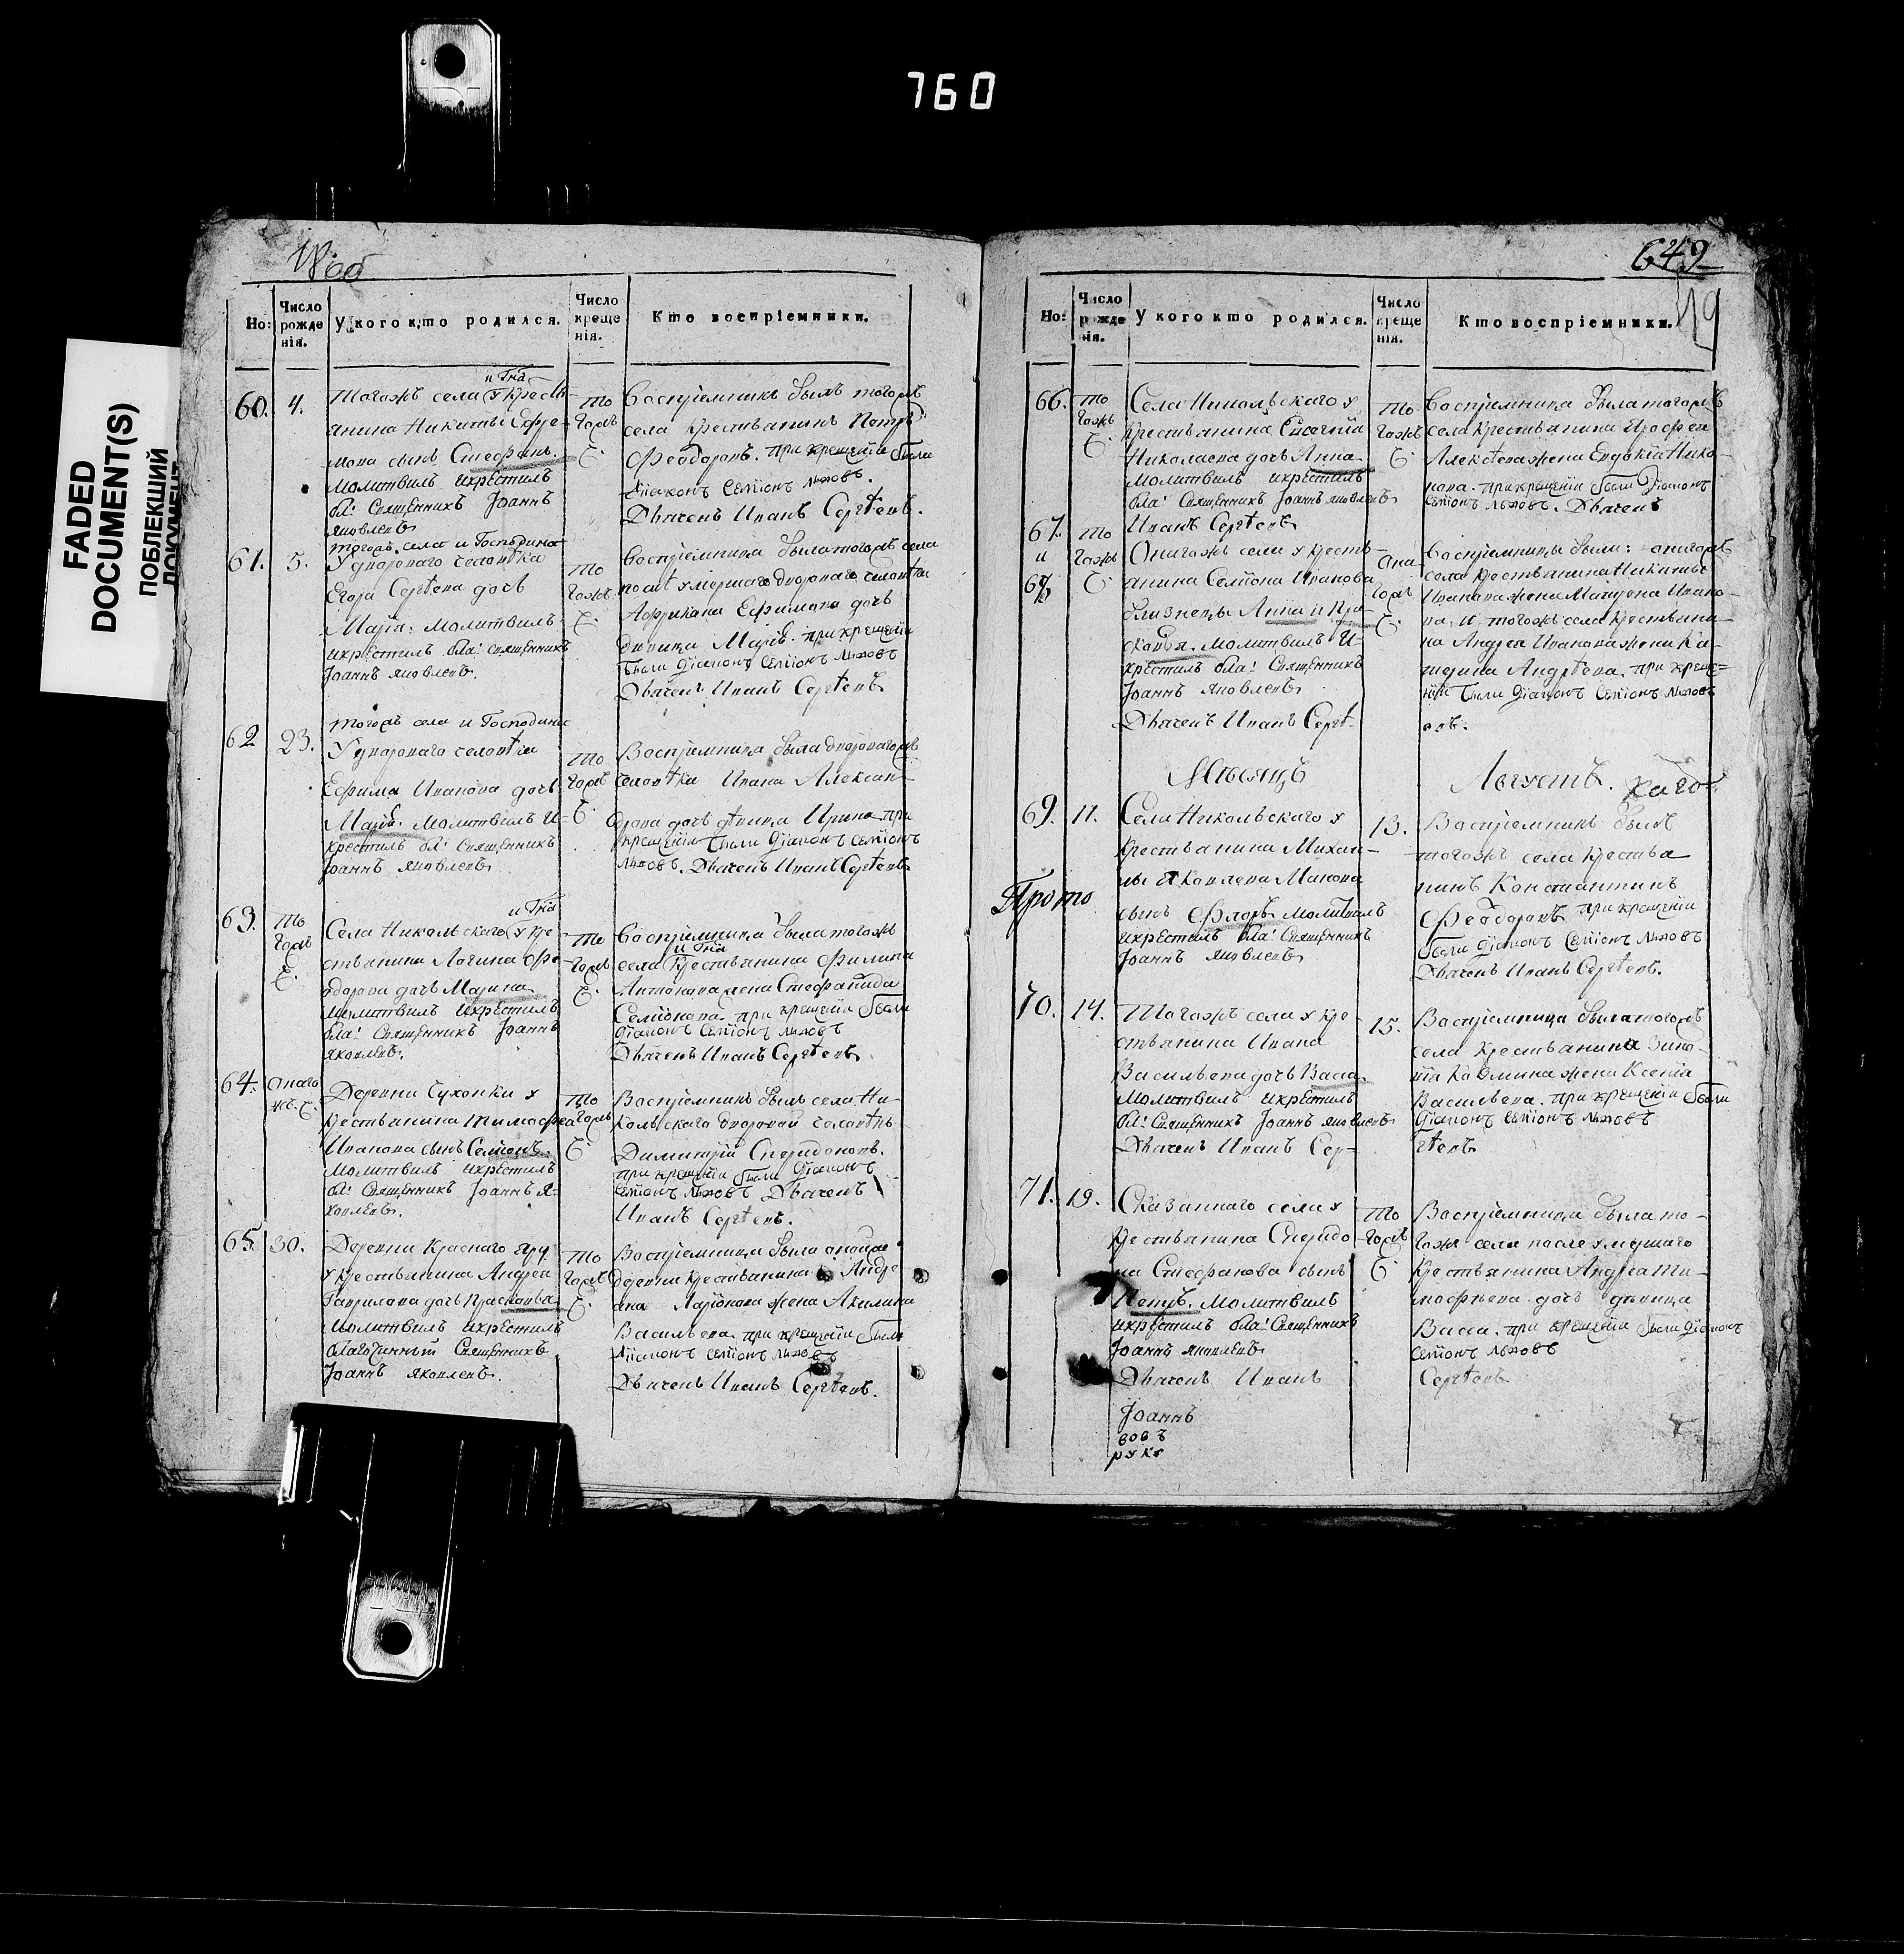 760
FADED
DOCUMENT(S)
ПОБЛЕКШИЙ
ДОКУМЕНТ
18 об
Но:
Число рожде нія.
У кого кто родился.
Число креще нія.
Кто воспріемники.
60.
4.
и Гна
Тогожъ села у кресть
янина Никиты Ефре-
мова сынъ Стефанъ.
молитвилъ икрестилъ
бла: Священникъ Іоаннъ
яковлевъ
то
гожъ
Воспріемникъ былъ тогожъ
села крестьянинъ Петръ
Феодоровъ. при крещеніи были
діаконъ Семіонъ львовъ.
Дьячекъ Иванъ Сергѣевъ.
61.
5.
тогожъ села и Господина
У двороваго человѣка
Егора Сергѣева дочь
Марія. молитвилъ
икрестилъ бла: священникъ
Іоаннъ яковлевъ.
то
гожъ
Воспріемница была тогожъ села
послѣ умершаго двороваго человѣка
Африкана Ефимова дочь
дѣвица Марія. при крещеніи
были діаконъ Семіонъ львовъ
Дьячекъ Иванъ Сергѣевъ
62
23.
тогожъ села и Господина
У двороваго человѣка
Ефима Иванова дочь
Марія. молитвилъ И-
крестилъ бла: священникъ
Іоаннъ яковлевъ.
то
гожъ
Воспріемница была двороваго жъ
человѣка Ивана Алексан-
дрова дочь дѣвица Ирина. при
крещеніи были діаконъ семіонъ
львовъ. Дьячекъ Иванъ Сергѣевъ
63.
то
гожъ
и Гна
Села Никольскаго у кре-
стьянина Логина Фе-
одорова дочь Марина
молитвилъ икрестилъ
бла: Священникъ Іоаннъ
яковлевъ.
то
гожъ
Воспріемница была тогожъ
и Гна
села крестьянина Филипа
Антонова жена Стефанида
Семіонова. при крещеніи были
діаконъ семіонъ львовъ
Дьячекъ Иванъ Сергѣевъ
64.
Онаго
жъ.
Деревни Сухонки у
крестьянина Тимофея
Иванова сынъ Семіонъ.
молитвилъ икрестилъ
бла: Священникъ Іоаннъ я-
ковлевъ.
то
гожъ
Воспріемникъ былъ села Ни-
кольскаго дворовой человѣкъ
Димитрій Спиридоновъ.
при крещеніи были діаконъ
семіонъ львовъ Дьячекъ
Иванъ Сергѣевъ.
65.
30.
Деревни Краснаго
у крестьянина Андрея
Гаврилова дочь Прасковья
молитвилъ икрестилъ
благочинный Священникъ
Іоаннъ яковлевъ.
то
гожъ
Воспріемница была онойже
деревни крестьянина Андре
яна Ларіонова жена Акилина
Васильева. при крещеніи были
діаконъ семіонъ львовъ
Дьячекъ Иванъ Сергѣевъ.
649
49
Но:
Число рожде нія.
У кого кто родился.
Число креще нія.
Кто воспріемники.
66.
то
гожъ
Села Никольскаго у
крестьянина
Николаева дочь Анна
молитвилъ икрестилъ
бла: Священникъ Іоаннъ яковлевъ
Иванъ Сергѣевъ
то
гожъ
Воспріемница была тогожъ
села крестьянина Ерофея
Алексѣева жена Евдокія Нико-
нова. при крещеніи были Діаконъ
семіонъ львовъ. Дьячекъ
67.
и
68
то
гожъ
Онагожъ села у кресть-
янина Семіона Иванова
близнецы Анна и Пра-
сковья. молитвилъ И-
крестилъ бла: Священникъ
Іоаннъ яковлевъ
Дьячекъ Иванъ Сергѣ-
она
гожъ
Воспріемницы были: онагожъ
села крестьянина Никиты
Иванова жена Матрена Ивано-
ва, и тогожъ села крестьяни-
на Андрея Иванова жена Ка-
терина Андрѣева. при креще-
ніи были діаконъ семіонъ львовъ
евъ.
Мѣсяцъ
Августъ.
69.
11.
Села Никольскаго у
крестьянина Михай-
лы Яковлева Макова
сынъ Флоръ молитвилъ
икрестилъ бла: Священникъ
Іоаннъ яковлевъ
13.
Воспріемникъ былъ
тогожъ села крестья
нинъ Константинъ
Феодоровъ при крещеніи
были діаконъ Семіонъ львовъ
Дьячекъ Иванъ Сергѣевъ.
Прото
70.
14.
Тогожъ села у кре
стьянина Ивана
Васильева дочь Васса
молитвилъ икрестилъ
бла: Священникъ Іоаннъ яковлевъ
Дьячекъ Иванъ Сер-
15.
Воспріемница была тогожъ
села крестьянина Зино-
вія Козмина жена Ксенія
Васильева. при крещеніи были
діаконъ семіонъ львовъ
гѣевъ
71.
19.
Сказаннаго села у
крестьянина Спиридо-
на Стефанова сынъ
Петръ. молитвилъ
икрестилъ бла: Священникъ
Іоаннъ яковлевъ
Дьячекъ Иванъ
то
гожъ
Воспріемница была то-
гожъ села после умершаго
крестьянина Андрея Ти-
мофѣева дочь дѣвица
Васса. при крещеніи были діаконъ
семіонъ львовъ
Сергѣевъ
Іоаннъ
вовъ
руку